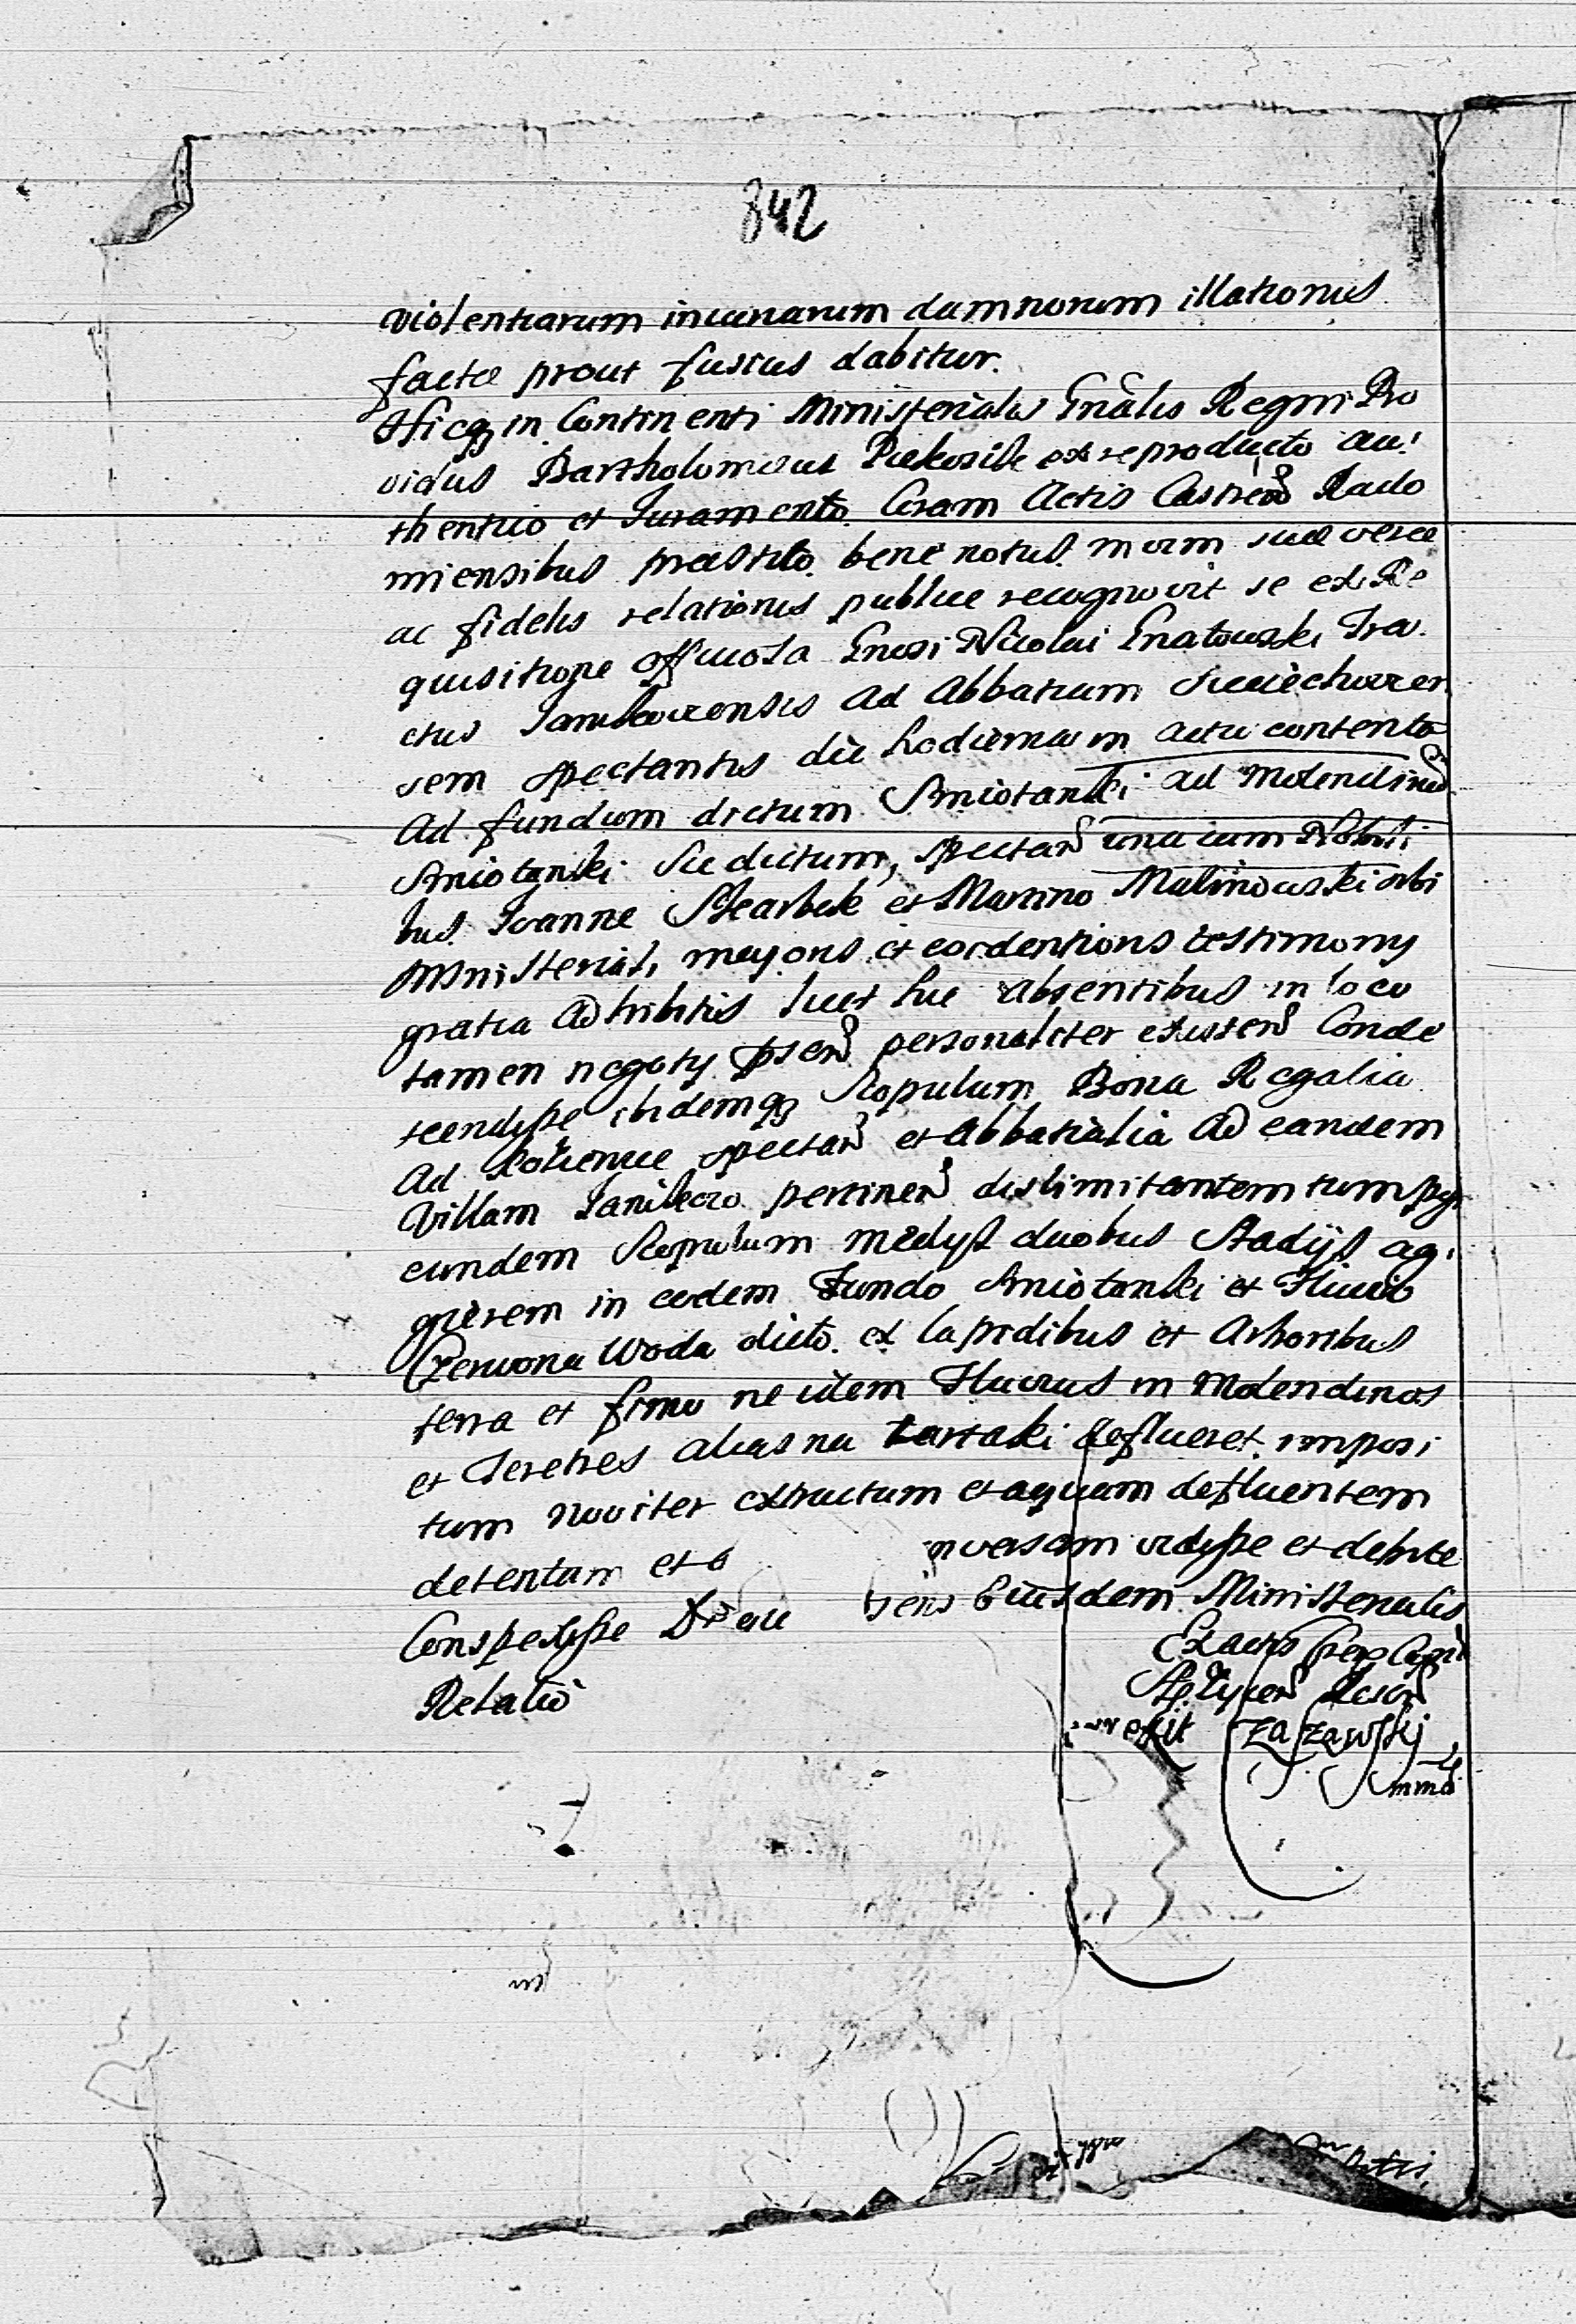 842
violentiarum iniuriarum damnorum illationis
factæ prout fusius dabitur.
Hicq3 in Continenti Ministerialis Gnãlis Regni Pro
vidus Bartholomeus Piekosik ex reproducto au:
thentico et Juramento Coram Actis Castren Rado
miensibus præstito bene notus. in vim suæ veræ
ac fidelis relationis publice recognovit se ex Re
quisitione officiosa Gnosi Nicolai Gnatowski Tra
ctus Janikoviensis ad Abbatiam Sieciechovien
sem spectantis die hodierna in actu contenta
Ad fundum dictum Smiotanki ad Molendinũ
Smiotanki sic dictum, spectan una cum Nobili
bus Joanne Skarbek et Martino Malinowski sibi
Ministeriali, mayoris et evidentioris testimony
gratia Adhibitis licet hic absentibus in loco
tamen negoty psen personaliter existen Conde
scendysse ibidemq3 Scopulum Bona Regalia
Ad spectan et Abbatialia Ad eandem
Villam Janikow pertinen dislimitantem tum
eundem Scopulum medyst duobus Stadijs ag,
gerem in eodem Fundo Smiotanki et Fluvio
Czerwona Woda dicto. ex lapidibus et Arboribus
terra et fimo ne idem Fluvius in Molendinos
et Teretres alias na tartaki deflueret. imposi
tum noviter extructum et aquam defluentem
detentam et versam vidysse et debite
Conspexysse Eiusdem Ministerialis
Relatio
Ex actis Capit
zaszawski
mmp